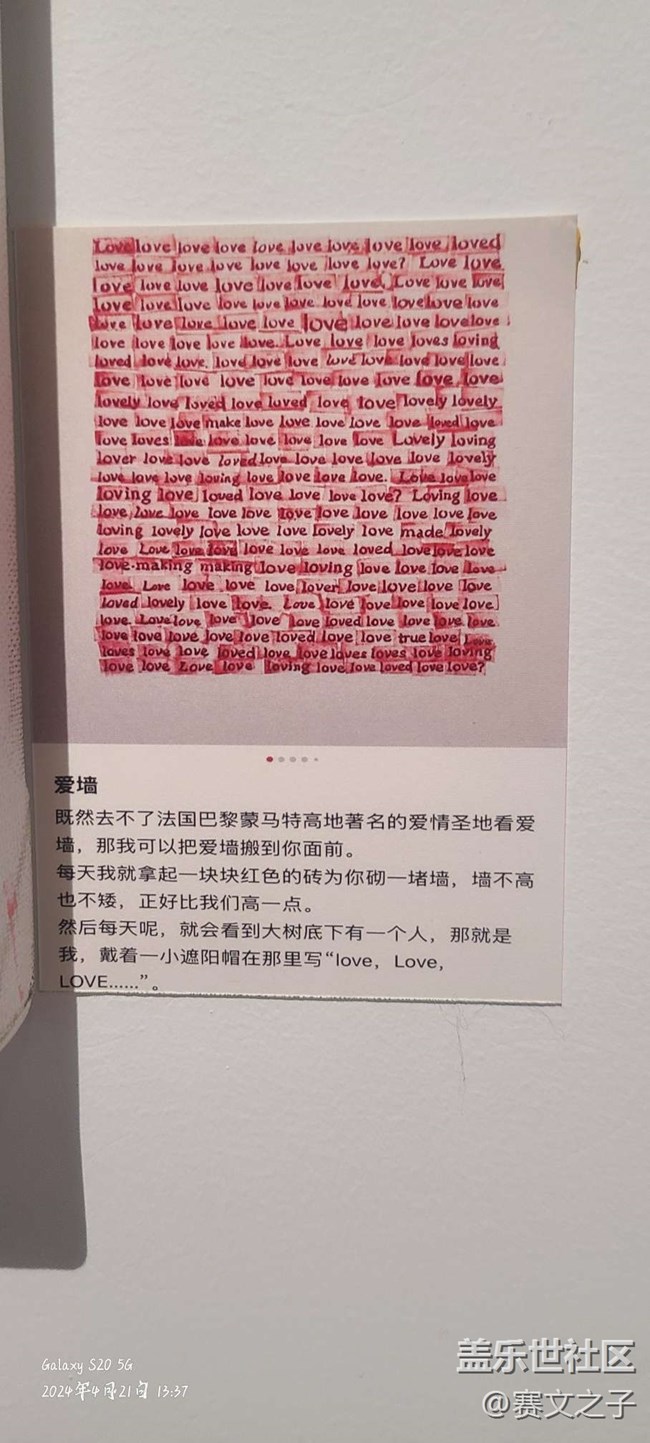 Love love love love love love love love love loved
love love love love love love love love? Love love
love love love love love love love Love love love
love love love love love love love love love love love
love love love love love love love love love love
love love love love love. Love love love loves loving
loved love love. love love love love love love love love
love love love love love love love love love love
lovely love loved love loved love love lovely lovely
love love love make love love love love love loved love
love loves love love love love love love Lovely loving
lover love love loved love love love love love lovely
love love love loving love love love love. Love love love
loving love loved love love love love? Loving love
love love love love love love love love love love love
loving lovely love love love lovely love made lovely
love Love love love love love love loved love love love
love-making making love loving love love love love
love. Love love love love lover love love love love
loved lovely love love. Love love love love love love
love. Love love love love love loved love love love love
love love love love love loved love love true love Love
loves love love loved love love loves loves love loving
love love Love love loving love love loved love love?
爱墙
既然去不了法国巴黎蒙马特高地著名的爱情圣地看爱
墙，那我可以把爱墙搬到你面前。
每天我就拿起一块块红色的砖为你砌一堵墙，墙不高
也不矮，正好比我们高一点。
然后每天呢，就会看到大树底下有一个人，那就是
我，戴着一小遮阳帽在那里写“love，Love，
LOVE......”。
Galaxy S20 5G
2024年4月21日 13:37
盖乐世社区
@赛文之子